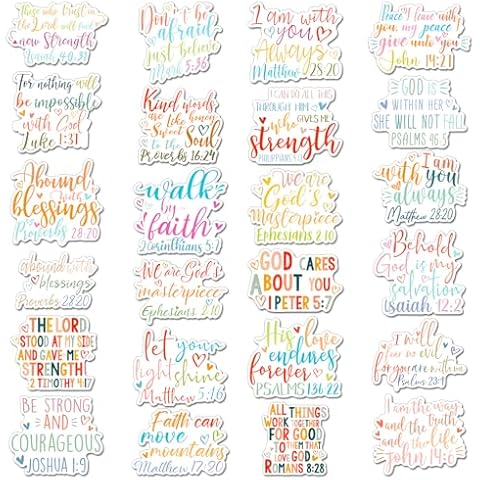 Those who trust in
the Lord will find
new Strength
Isaiah 40:31
Don't be
afraid
just believe
Mark 5:36
I am with
you
Always
Matthew
28:20
Peace I leave with
you, my peace
give unto you
John 14:21
For nothing will
be impossible
with God
Luke 1:37
Kind words
are like honey
Sweet to the Soul
Proverbs 16:24
I CAN DO ALL THIS
THROUGH HIM
who GIVES ME
strength
PHILIPPIANS 4:13
GOD IS
WITHIN HER
SHE WILL NOT FALL
PSALMS 46:5
Abound
with
blessings
Proverbs 28:20
walk
by
faith
2 Corinthians 5:7
We are
God's
masterpiece
Ephesians 2:10
I am
with you
always
Matthew 28:20
abound with
blessings
Proverbs 28:20
We are God's
masterpiece
Ephesians 2:10
GOD CARES
ABOUT YOU
1 PETER 5:7
Behold
God is my
salvation
Isaiah 12:2
THE LORD
STOOD AT MY SIDE
AND GAVE ME
STRENGTH
2 TIMOTHY 4:17
let your
light shine
Matthew 5:16
His love
endures
forever
PSALMS 136:22
I will
fear no evil
for you are with me
Psalms 23:4
BE STRONG
AND
COURAGEOUS
JOSHUA 1:9
Faith can
move
mountains
Matthew 17:20
ALL THINGS
WORK TOGETHER
FOR GOOD
TO THEM THAT
LOVE GOD
ROMANS 8:28
I am the way
and the truth
and the Life
John 14:6